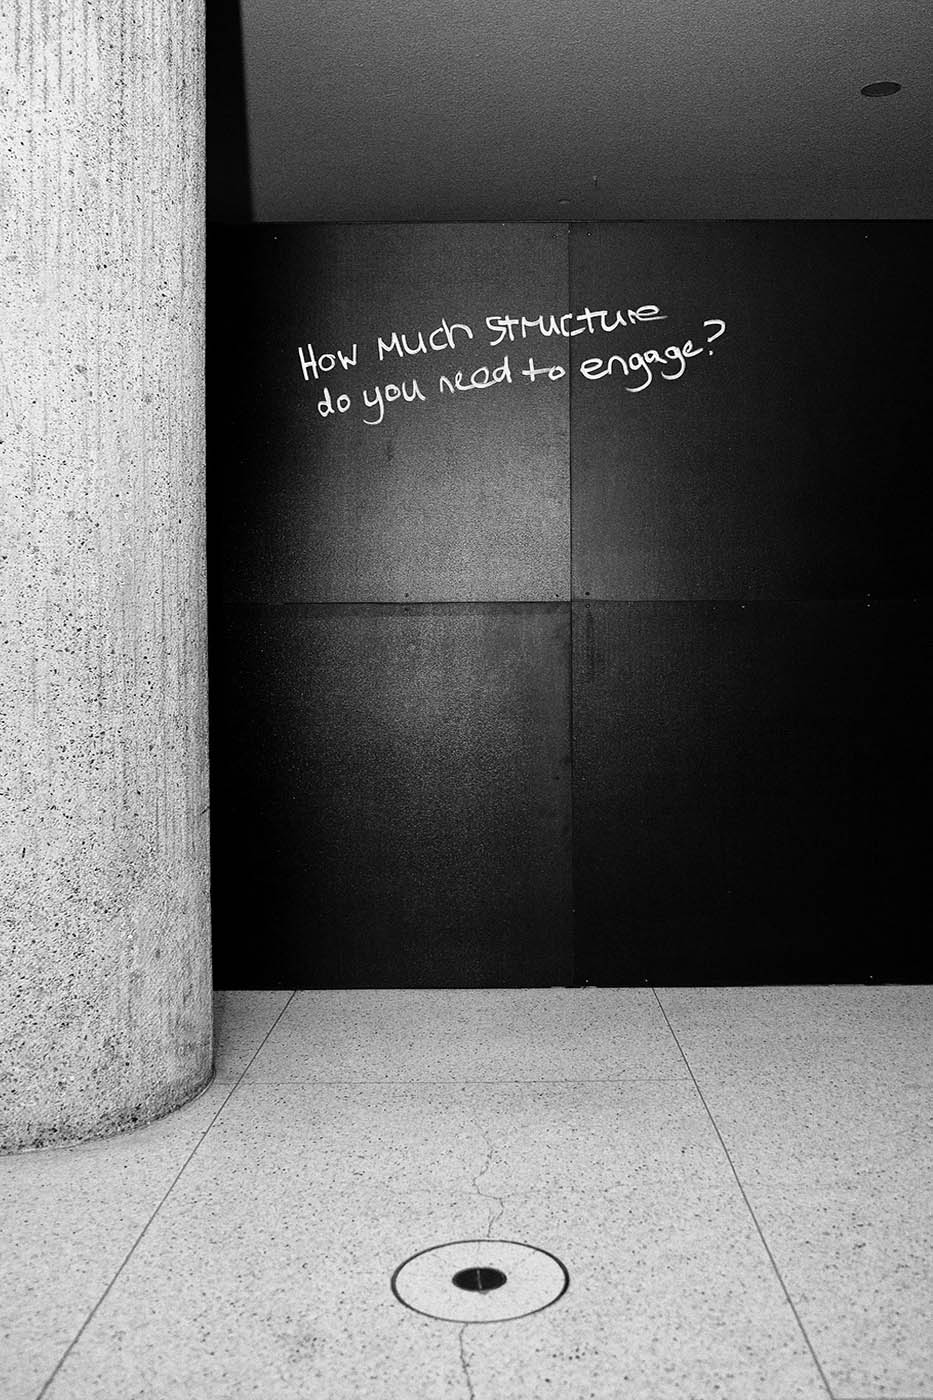 How Much Structure
do you need to engage?